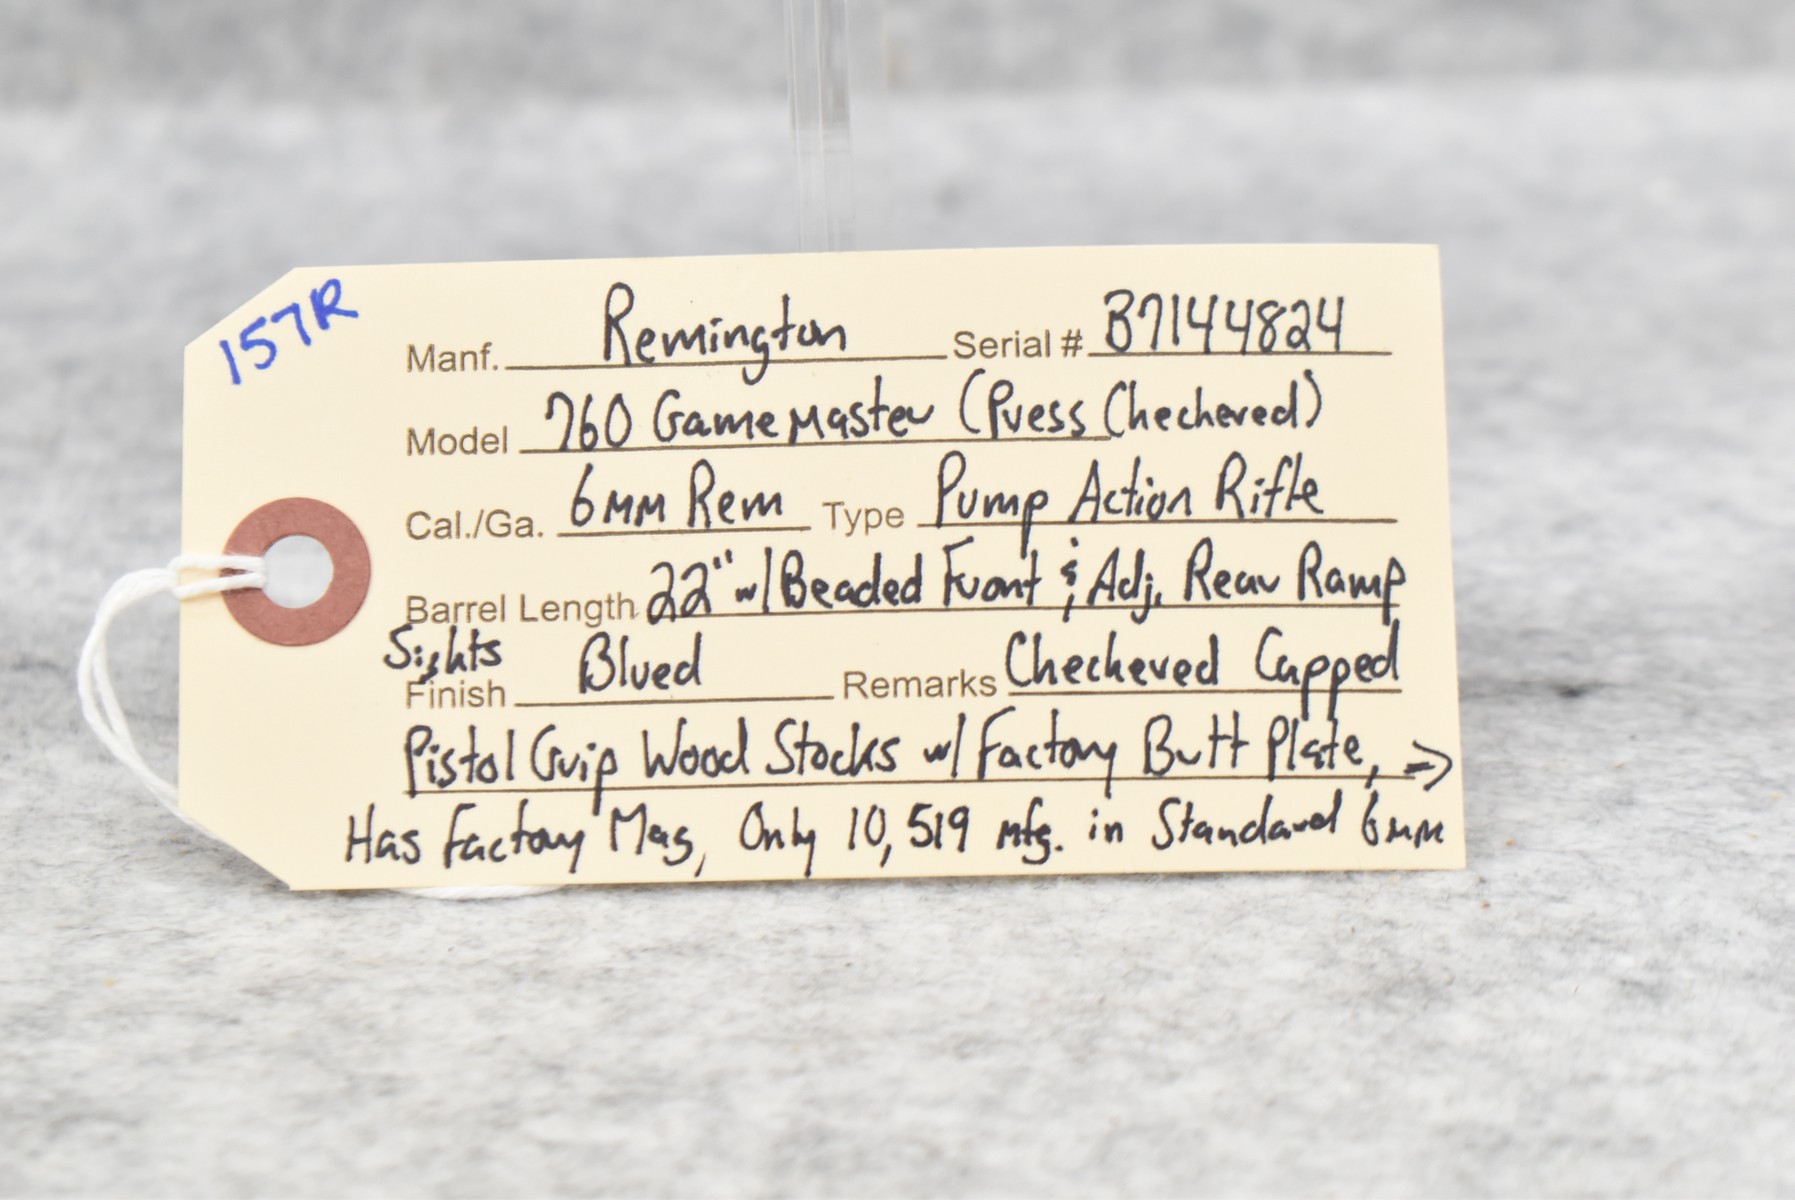 157R
Manf. Remington Serial # B7144824
Model 760 GameMaster (Press Checkered)
Cal./Ga. 6MM Rem Type Pump Action Rifle
Barrel Length 22" w/ Beaded Front & Adj. Rear Ramp
Sights
Finish Blued Remarks Checkered Capped
Pistol Grip Wood Stocks w/ Factory Butt Plate, →
Has Factory Mag, Only 10,519 mfg. in Standard 6mm